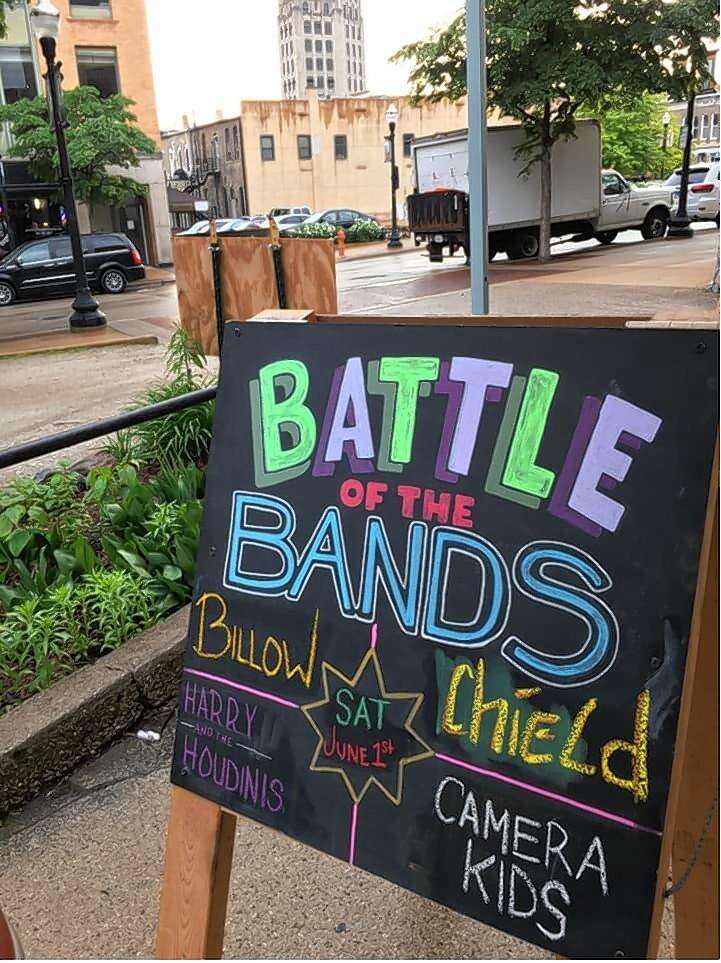 BATTLE
OF THE
BANDS
BILLOW
ChiELd
SAT
JUNE 1st
HARRY
AND THE
HOUDINIS
CAMERA
KIDS